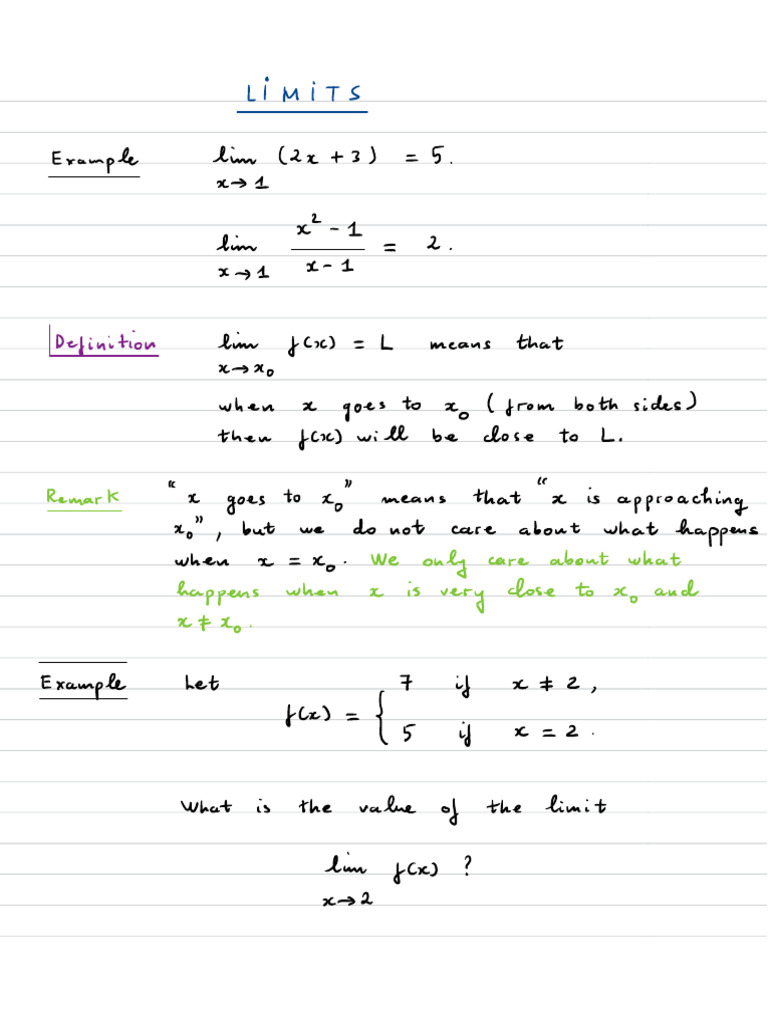 LIMITS
Example lim (2x + 3) = 5.
x→1
lim x² - 1 / x - 1 = 2.
x→1
Definition lim f(x) = L means that
x→x₀
when x goes to x₀ (from both sides)
then f(x) will be close to L.
Remark “x goes to x₀” means that “x is approaching
x₀”, but we do not care about what happens
when x = x₀. We only care about what
happens when x is very close to x₀ and
x ≠ x₀.
Example Let 7 if x ≠ 2,
f(x) = {
5 if x = 2.
What is the value of the limit
lim f(x) ?
x→2